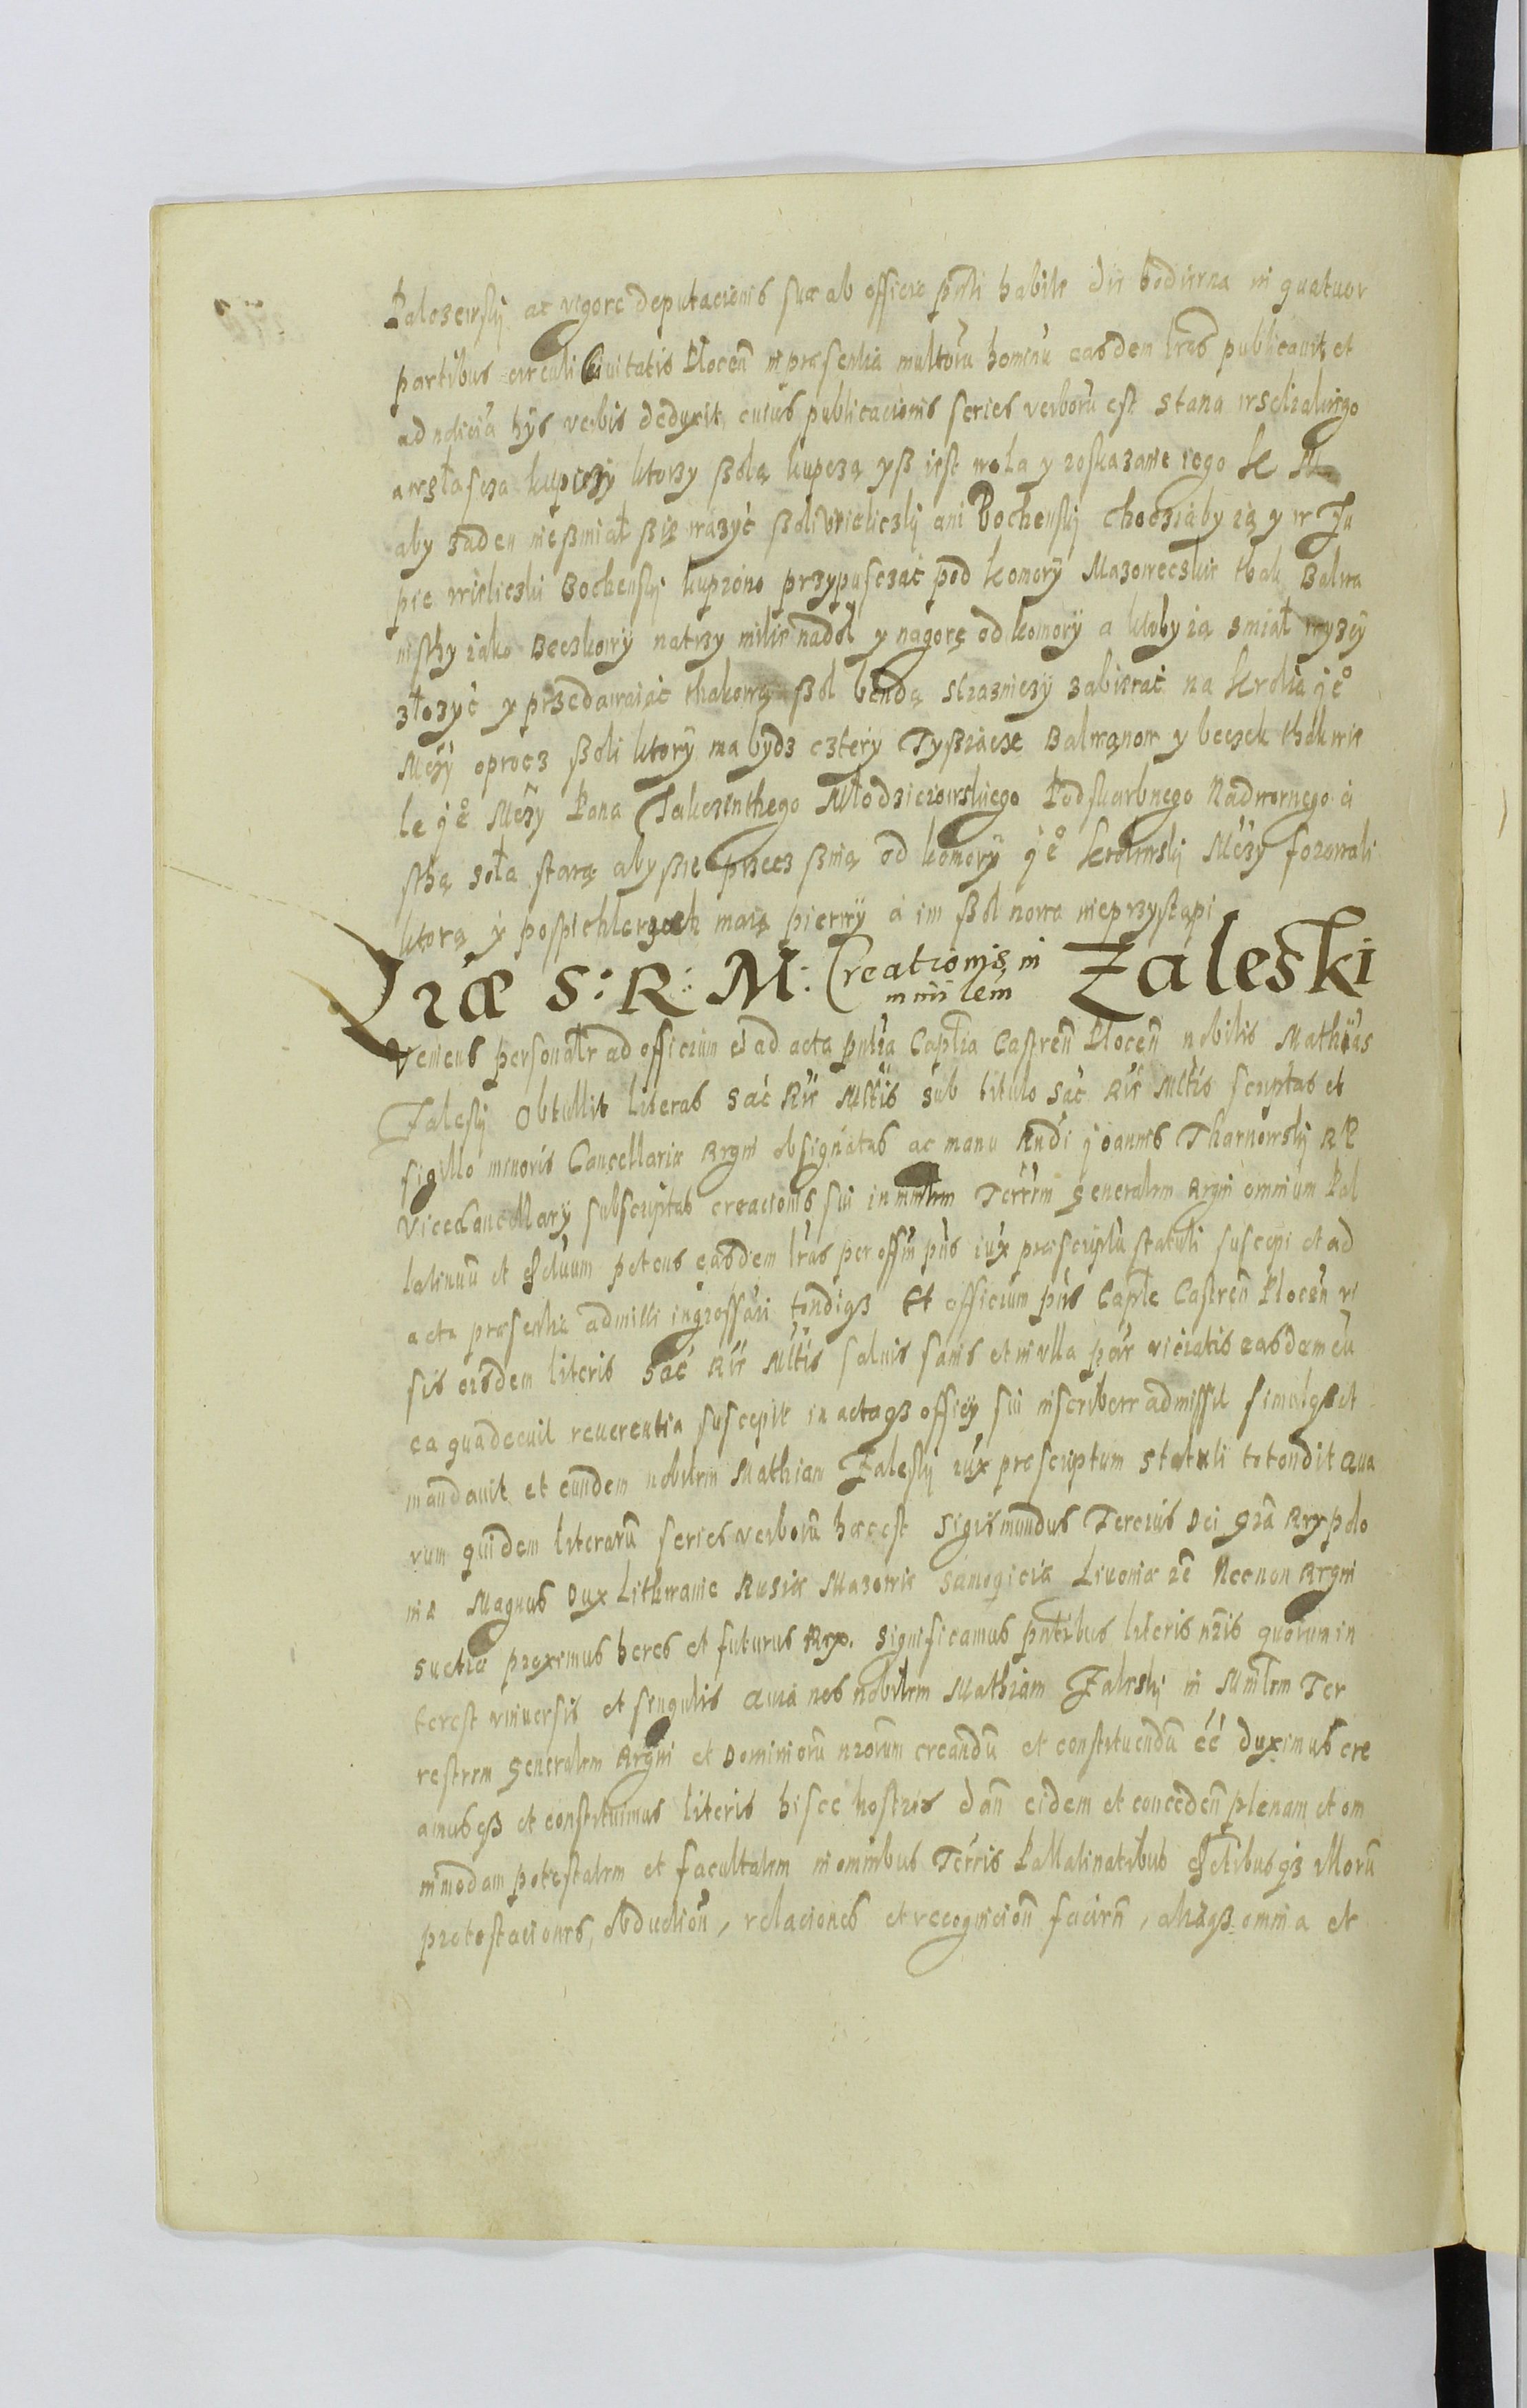 Palczewskÿ ac vigore deputacionis suæ ab officio pnti habite die hodierna in quatuor
partibus circuli Civitatis Plocen in præsentia multoru hominu easdem lras publicavit et
ad noticia hÿs verbis deduxit, cuius publicacionis series verboru est stana wselialiego
a wzłascza kupiczÿ ktorzy ßolą kupczą yß iest wola y roskazanie iego K M
aby zaden nießmiał ßię wazyć ßoli Wieliczkÿ ani Bochenskÿ chocziaby ią y w Zu
pie wieliczki Bochenskÿ kupiono przypusczać pod komorÿ Mazowieczkie thak Balwa
nisthy iako Beczkowÿ natrzy milie nadol y nagorę od komorÿ a ktoby ią smiał wyzÿ
złozyć y przedawaiąć thakową ßol bendą strazniczÿ zabierać na Krolia ie°
Mczÿ oprocz ßoli ktorÿ ma bydz czterÿ Tyßiącze Balwąnow y beczek thÿlie wie
le ie° Mczy Pana Jakczenthego Młodzieiowskiego Podskarbnego Nadwornego á
sthą sola starą aby ßie przecz ßnią od komorÿ ie° Krolewskÿ Mczy fozowali
ktorą y pospichlerzach maią pierwÿ á im ßol nowa nieprzystąpi
Lræ S: R: M: Creationis in
militem Zaleski
Veniens personalr ad officium et ad acta pntia Captia Castren Plocen nobilis Mathias
Zaleskÿ Obtullit literas Sac Rie Mttis sub titulo Sac Rie Mttis scriptas et
sigillo minoris Cancellariæ Regni obsignatas ac manu Rndi Joannis Tharnowskÿ R P
Vicecancellary subscriptas creacionis sui in militem Terrem Generalem Regni omnium Pal
latinuu et Distuum petens easdem lras per offm pns iux præscriptu statuti suscipi et ad
acta præsentia admitti ingrossari tondiqß Et officium pns Capte Castren Plocen vi
sis eisdem literis Sac Rie Mttis salvis sanis et in ulla par viciatis easdem cu
ea qua decuit reverentia suscepit in actaqß officÿ sui inscribere admissit simulqß et
mandavit et eundem nobilem Mathiam Zaleskÿ iux præscriptum statuti totondit qua
rum quidem literaru series verboru hæc est Sigismundus Tercius Dei Gra Rex polo
niæ Magnus Dux Lithwanie Russie Mazowie Samogicie Livoniæ ec Necnon Regni
Suetiæ proximus heres et futurus Rex. Significamus pntibus literis nris quorum in
terest universis et singulis quia nos nobilem Mathiam Zaleskÿ in Militem Ter
restrem Generalem Regni et Dominioru nrorum creandu et constituendu ee duximus cre
amusqß et constituimus literis hisce nostris dan eidem et conceden plenam et om
nimodam potestatem et facultatem in omnibus Terris Pallatinatibus Distibusqß illoru
protestaciones, obduction, relaciones et recognicion facien, aliaqß omnia et